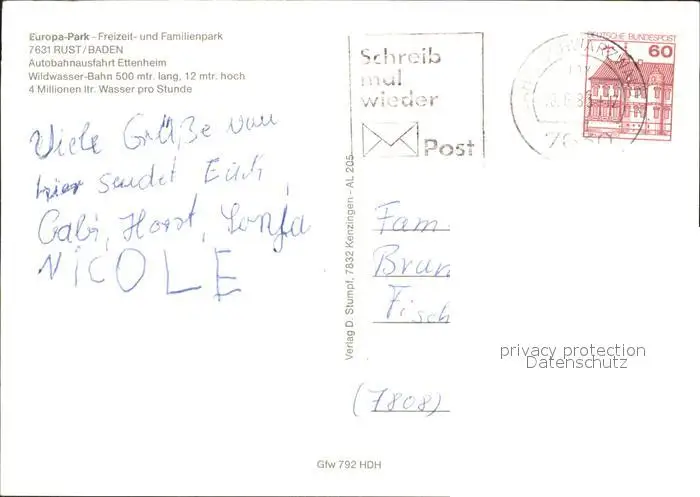 Europa-Park - Freizeit- und Familienpark
7631 RUST/BADEN
Autobahnausfahrt Ettenheim
Wildwasser-Bahn 500 mtr. lang, 12 mtr. hoch
4 Millionen ltr. Wasser pro Stunde
Schreib
mal
wieder
Post
DEUTSCHE BUNDESPOST
60
Viele Grüße von
hier sendet Euch
Gabi, Horst, Sonja
NICOLE
Verlag D. Stumpf, 7832 Kenzingen - AL 205
Fam.
Brun
Fisch
(7808)
privacy protection
Datenschutz
Gfw 792 HDH